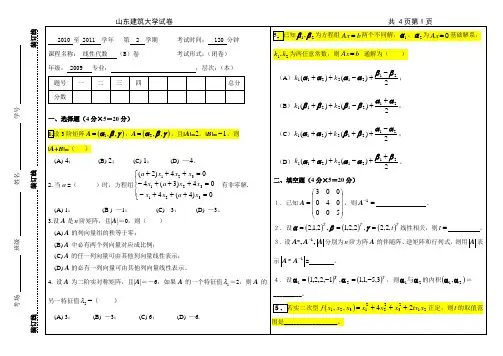 山东建筑大学试卷 共 4页第1页
2010 至 2011 学年 第 2 学期 考试时间: 120 分钟
课程名称: 线性代数 (B)卷 考试形式:(闭卷)
年级: 2009 专业: ;层次:(本)
题号 一 二 三 四 总分
分数
一、选择题(4分×5=20分)
设3阶矩阵A=(α₁,β,γ),A=(α₂,β,γ),且|A|=2,|B|=-1,则
|A+B|=( )
(A) 4; (B) 2; (C) 1; (D) —4.
2.当a=( )时,方程组 { (a+2)x₁+4x₂+x₃=0
-4x₁+(a+3)x₂+4x₃=0
-x₁+4x₂+(a+4)x₃=0 有非零解.
(A) 1; (B) —1; (C) 3; (D) —3.
3.设A是n阶矩阵,且|A|=0,则( )
(A) A的列向量组的秩等于零;
(B) A中必有两个列向量对应成比例;
(C) A的任一列向量可由其他列向量线性表示;
(D) A的必有一列向量可由其他列向量线性表示.
4.设A为二阶实对称矩阵,且|A|=-6,如果A的一个特征值λ₁=2,则A的
另一特征值λ₂=( )
(A) 3; (B) —3; (C) 6; (D) —6.
已知β₁,β₂为方程组Ax=b两个不同解,α₁、α₂为Ax=0基础解系,
k₁,k₂为所任意常数,则Ax=b 通解为( )
(A) k₁(α₁+α₂)+k₂(α₁-α₂)+(β₁-β₂)/2,
二、填空题(4分×5=20分)
1.已知A=(3 0 0
0 4 0
0 0 5),则A⁻¹= .
2.设α=(2,1,2)ᵀ,β=(1,2,2)ᵀ,γ=(2,2,t)ᵀ线性相关,则t= .
3.设A*,A⁻¹,|A|分别为n阶方阵A的伴随阵、逆矩阵和行列式,则用|A|表
示|A*A⁻¹|= .
4.设α₁=(1,2,2,-1)ᵀ,α₂=(1,1,-5,3)ᵀ,则α₁与α₂的内积(α₁,α₂)=
.
5.若实二次型f(x₁,x₂,x₃)=x₁²+4x₂²+x₃²+2tx₁x₂正定,则t的取值范
围是 .
考场 班级 姓名 学号
装订线 装订线 装订线
装订线 装订线 装订线